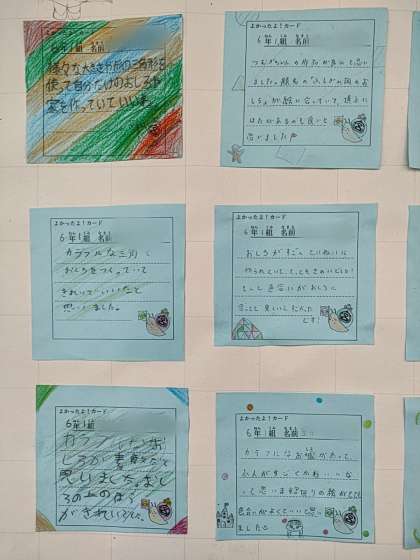 6年1組 名前
様々な大きさや形の三角形を
使って自分だけのおしろや
家を作っていていいね。
よかったよ!カード
6年1組 名前
と思い
ました。
おしろが絵に合っていて、頂上に
はたがあるのも良いと
思いました
よかったよ!カード
6年1組 名前
カラフルな三角で
おしろをつくっていて
きれいでいいなと
思いました。
よかったよ!カード
6年1組 名前
おしろがすごくていねいに
作られていて、とってもきれいでした!
そして色合いがおしろに
合ってて良いなと
です!
よかったよ!カード
6年1組
カラフルなお
しろが素敵だなと
思いました。おし
ろの上のほう
がきれいでした。
よかったよ!カード
6年1組 名前
カラフルなお城があって、
ふんいきがすごくかわいいな
って思います
色合いがよくていいと思い
ました